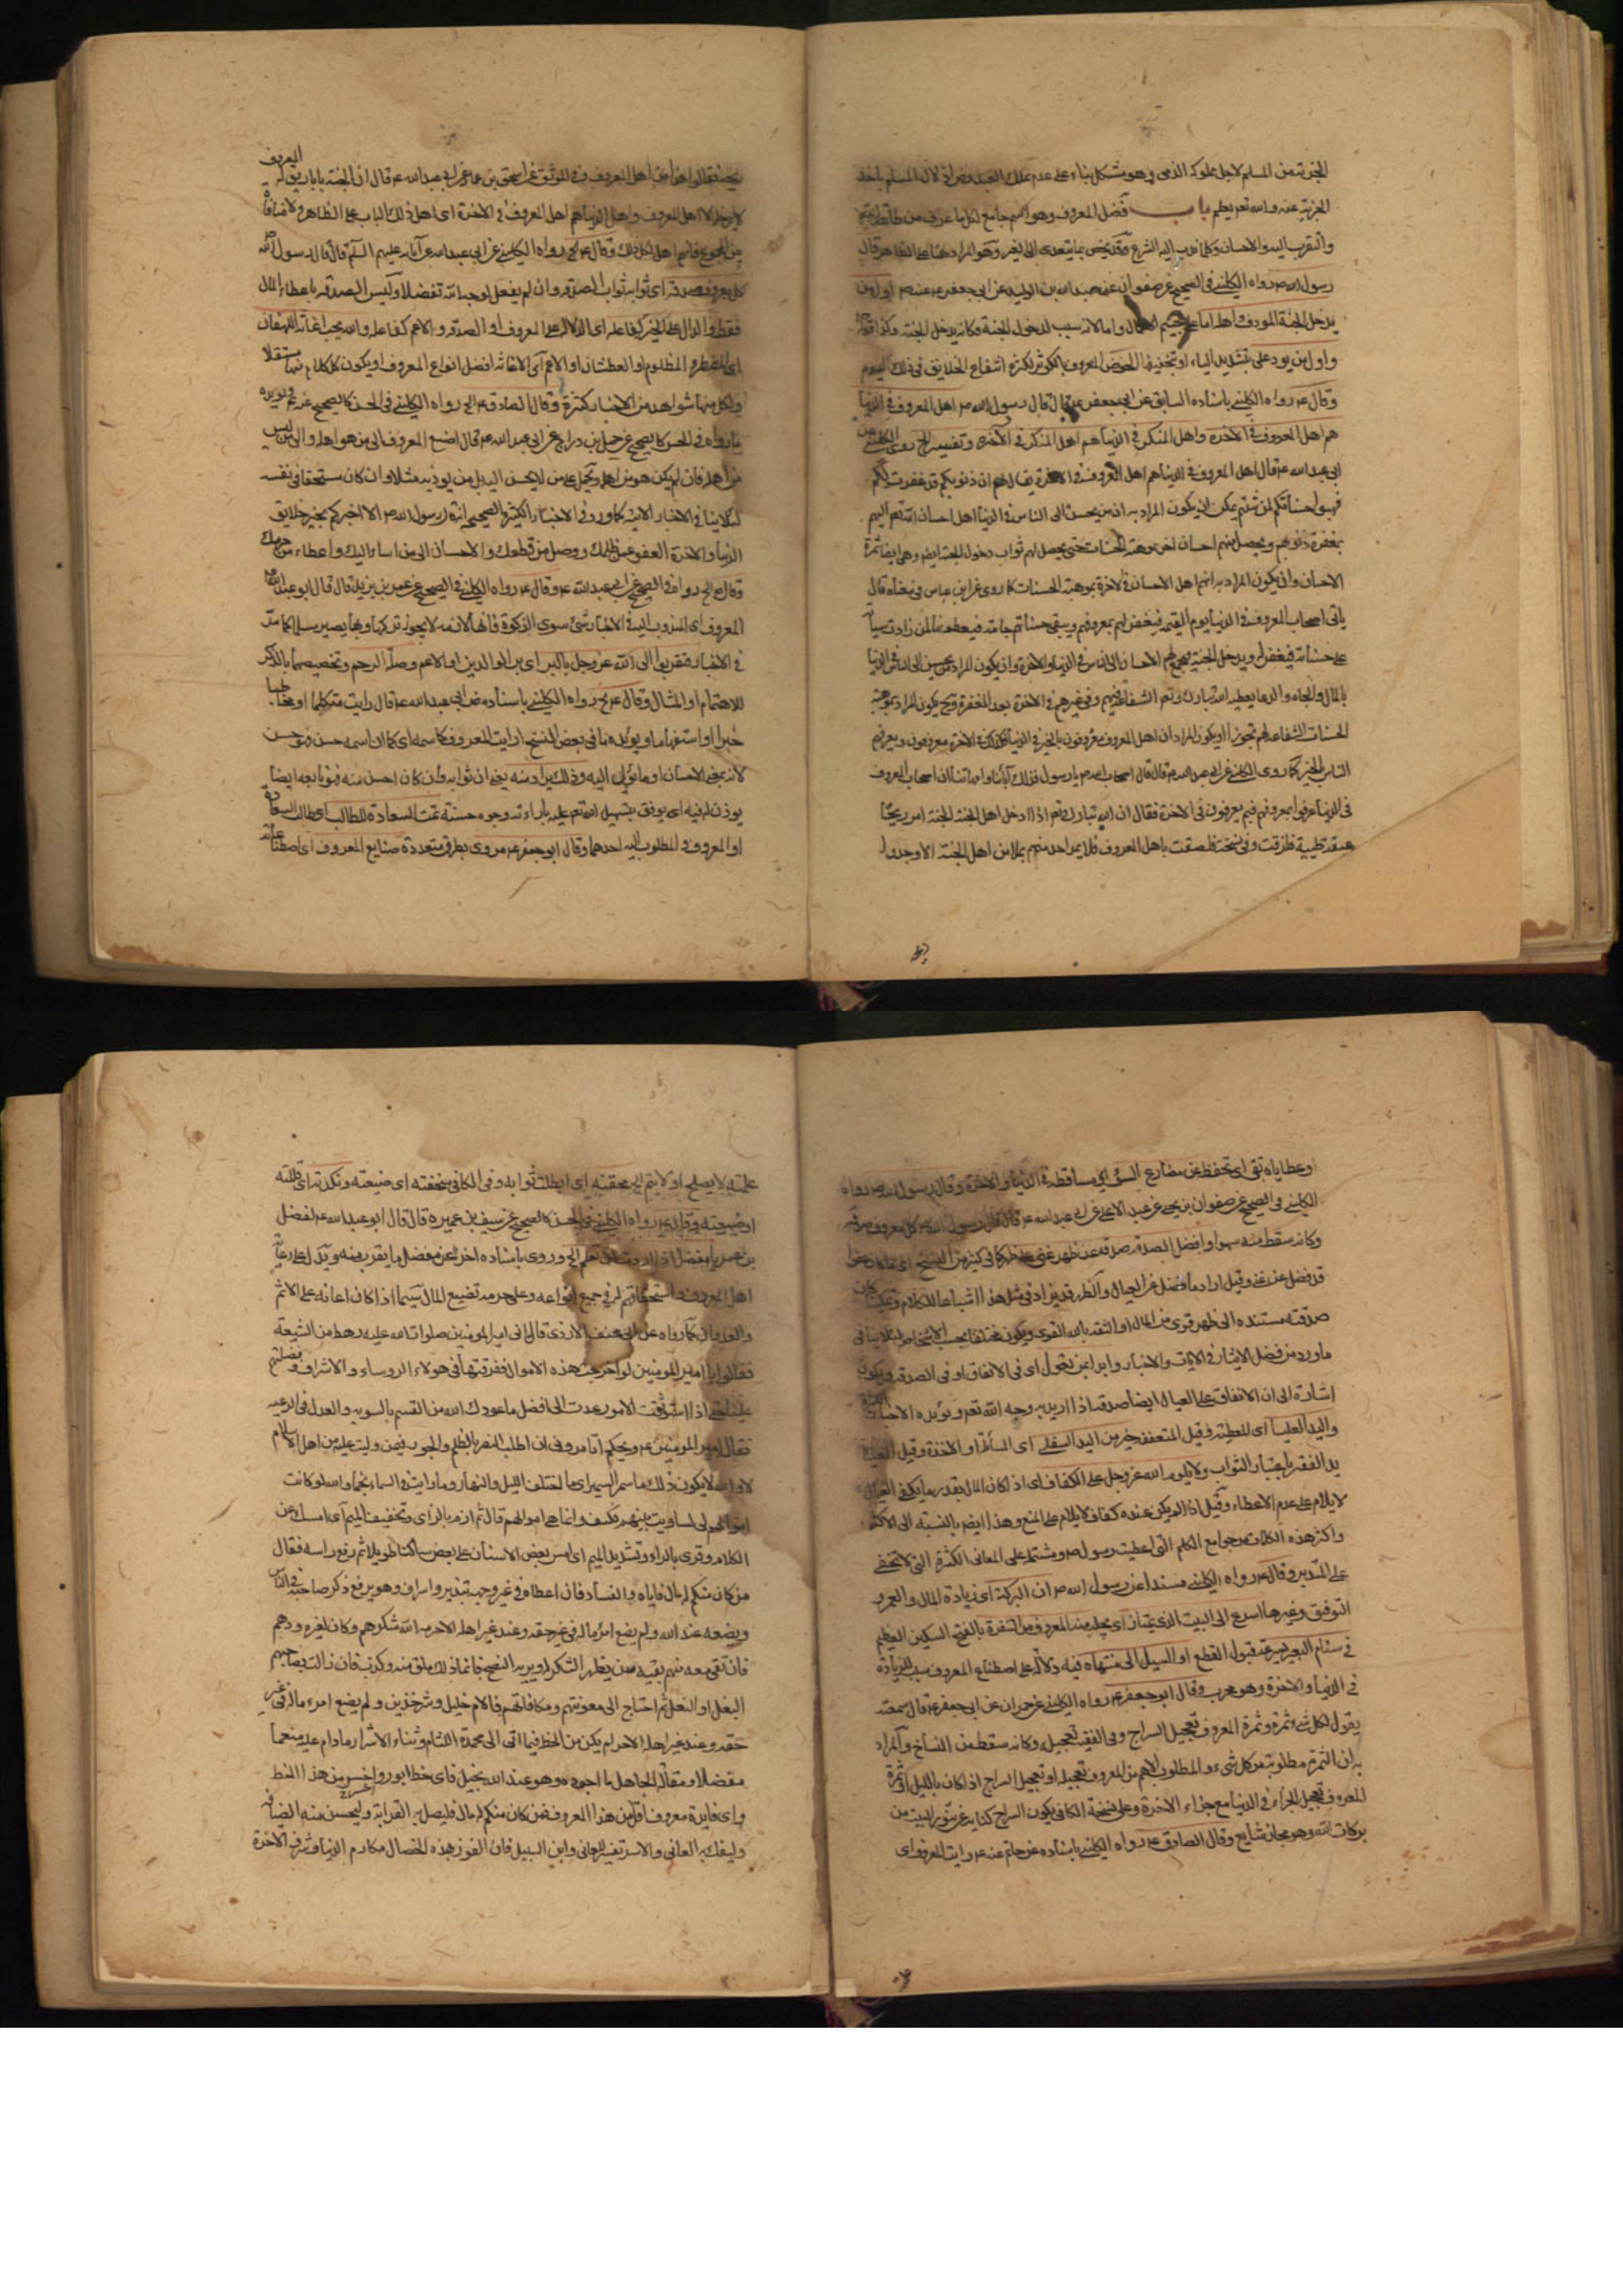 الجزية عن المسلم لاجل مملوكه الذمى وهو مشكل بناء على عدم تملك العبد
الجزية عنه والله تعالى يعلم باب فضل المعروف وهو اسم جامع لكل ما عرف من طاعة الله
والتقرب اليه والاحسان وكلما ندب اليه الشرع وقد يخص بما يتعدى الى الغير وهو المراد هنا على الظاهر قال
رسول الله ص رواه الكلينى فى الصحيح عن صفوان عن عبد الله بن الوليد عن ابى جعفر ع عنه ص اول من
يدخل الجنة المعروف واهله اما واما لانه سبب لدخول الجنة وكانه يدخل الجنة وكذا قوله
واول من يرد على بتشديد الياء او تخفيفها الحوض المعروف بالكوثر لكثرة انتفاع الخلايق فى ذلك اليوم
وقال ع رواه الكلينى باسناده السابق عن ابى جعفر ع قال قال رسول الله ص اهل المعروف فى الدنيا
هم اهل المعروف فى الاخرة واهل المنكر فى الدنيا هم اهل المنكر فى الاخرة وتفسيره الخ روى الكلينى عن
ابى عبد الله ع قال اهل المعروف فى الدنيا هم اهل المعروف فى الاخرة يقال لهم ان ذنوبكم قد غفرت لكم
فهبوا حسناتكم لمن شئتم يمكن ان يكون المراد به ان من يحسن الى الناس فى الدنيا اهل احسان الله تعالى اليهم
بمغفرة ذنوبهم ويحصل منهم احسان اخر من هبة الحسنات حتى يحصل لهم ثواب دخول الجنة ايضا وهى ايضا ثمرة
الاحسان وان يكون المراد به انهم اهل الاحسان فى الاخرة بموهبة الحسنات كما روى عن ابن عباس فى معناه قال
ياتى اصحاب المعروف فى الدنيا يوم القيمة فيغفر لهم بمعروفهم ويبقى حسناتهم جامة فيعطونها لمن زادت سيآته
على حسناته فيغفر له ويدخل الجنة فيجتمع لهم الاحسان الى الناس فى الدنيا والاخرة وان يكون المراد من يحسن الى الناس فى الدنيا
بالمال والجاه والدعا يعطيه الله تبارك وتعالى الشفاعة فيهم وفى غيرهم فى الاخرة بعد المغفرة وح يكون المراد بموهبة
الحسنات الشفاعة لهم تجوزا او يكون المراد ان اهل المعروف معروفون بالخير فى الدنيا كذلك فى الاخرة معروفون ويعرفهم
الناس بالخير كما روى الكلينى عن ابى عبد الله ع قال قال اصحاب رسول الله ص يا رسول الله فداك آبائنا وامهاتنا ان اصحاب المعروف
فى الدنيا عرفوا بمعروفهم فبم يعرفون فى الاخرة فقال ان الله تبارك وتعالى اذا ادخل اهل الجنة الجنة امر ريحا
عبقة طيبة فلزقت وفى نسخة فلصقت باهل المعروف فلا يمر احد منهم بملا من اهل الجنة الا وجدوا
ريحه فقالوا هذا من اهل المعروف وفى الموثق عن اسحق بن عمار عن ابى عبد الله ع قال ان للجنة بابا يقال له المعروف
لا يدخله الا اهل المعروف واهل المعروف فى الدنيا هم اهل المعروف فى الاخرة اى اهل ذلك الباب على الظاهر ولا منافاة
بين الجميع فانهم اهل لكل ذلك وقال ع رواه الكلينى عن ابى عبد الله عن آبائه عليهم السلم قال قال رسول الله
كل معروف صدقة اى ثوابه ثواب الصدقة وان لم يفعل لوجه الله تفضلا وليس الصدقة باعطاء المال
فقط والدال على الخير كفاعله اى الدلالة على المعروف او الصدقة والاعم كفاعله والله يحب اغاثة اللهفان
اى المضطر والمظلوم او العطشان او الاعم اى الاغاثة افضل انواع المعروف او يكون كل كلام منها مستقلا
ولكل منها شواهد من الاخبار كثيرة وقال الصادق ع رواه الكلينى فى الحسن كالصحيح ويؤيده
ما رواه فى الحسن كالصحيح عن جميل بن دراج عن ابى عبد الله ع قال اصنع المعروف الى من هو اهله والى من ليس
من اهله فان لم يكن هو من اهله ويحمل على من لا يحسن اليه بل من يوذيه مثلا وان كان مستحقا فى نفسه
لئلا ينافى الاخبار الاتية كما ورد فى الاخبار الكثيرة الصحيحة انه قال رسول الله ص الا اخبركم بخير خلايق
الدنيا والاخرة العفو عمن ظلمك ووصل من قطعك والاحسان الى من اساء اليك واعطاء من حرمك
وقال ع الخ رواه فى الصحيح عن ابى عبد الله ع وقال ع رواه الكلينى فى الصحيح عن عمر بن يزيد قال قال ابو عبد الله
المعروف اى المندوب اليه فى الاخبار شئ سوى الزكوة فانها لازمة لا يجوز تركها وبها يصير مسلما كما مر
فى الاخبار فتقربوا الى الله عز وجل بالبر اى بر الوالدين او الاعم وصلة الرحم وتخصيصهما بالذكر
للاهتمام او المثال وقال ع رواه الكلينى باسناده عن ابى عبد الله ع قال رايت متكلما او مخاطبا
خبرا او استفهاما ويؤيده ما فى بعض النسخ ارايت المعروف كاسمه اى كما ان اسمه حسن فهو حسن
لانه بمعنى الاحسان او ما يؤل اليه وذلك يراد منه يعنى ان ثوابه وان كان احسن منه فهو تابعه ايضا
يوذن له فيه اى يوفق بتسهيل الله تعالى عليه باراءته وجوه حسنة تمت السعادة للطالب اى طالب السعادة
او المعروف والمطلوب اليه احدهما وقال ابو جعفر ع مروى بطرق متعددة صنايع المعروف اى اصطناعه
وعطاياه تقى اى تحفظ عن مصارع السوء اى مساقطه فى الدنيا والاخرة وقال رسول الله ص رواه
الكلينى فى الصحيح عن صفوان بن يحيى عن عبد الاعلى عن ابى عبد الله ع قال قال رسول الله ص كل معروف صدقة
وكانه سقط منه سهوا وافضل الصدقة صدقة عن ظهر غنى كما فى كثير من النسخ اى ما كان عفوا
قد فضل عن غنى وقيل اراد ما فضل عن العيال والظهر قد يزاد فى مثل هذا اشباعا للكلام وتمكينا كان
صدقته مستندة الى ظهر قوى من المال او الثقة بالله القوى ويكون مختلفا بحسب الاشخاص لئلا ينافى
ما ورد من فضل الايثار فى الايات والاخبار وابدا بمن تعول اى فى الانفاق او فى الصدقة ويكون
اشارة الى ان الانفاق على العيال ايضا صدقة اذا اريد به وجه الله تعالى ويؤيده الاخبار الكثيرة
واليد العليا اى المعطية وقيل المتعففة خير من اليد السفلى اى السائلة او الاخذة وقيل العليا
يد الفقير باعتبار الثواب ولا يلوم الله عز وجل على الكفاف اى اذا كان المال بقدر ما يكفى العيال
لا يلام على عدم الاعطاء وقيل اذا لم يكن عنده كفاف لا يلام على المنع وهذا ايضا بالنسبة الى الاكثر
واكثر هذه الكلمات من جوامع الكلم التى اعطيت رسول الله ص ومشتملة على المعانى الكثيرة التى لا تخفى
على المتدبر وقال ع رواه الكلينى مسندا عن رسول الله ص ان البركة اى زيادة المال والعمر و
التوفيق وغيرها اسرع الى البيت الذى يمتار اى يجلب منه المعروف من الشفرة بالفتح السكين العظيم
فى سنام البعير بسرعة قبول القطع او السيل الى منتهاه فيه دلالة على اصطناع المعروف سبب للزيادة
فى الدنيا والاخرة وهو مجرب وقال ابو جعفر ع رواه الكلينى عن حمران عن ابى جعفر ع قال سمعته
يقول لكل شئ ثمرة وثمرة المعروف تعجيل السراج وفى الفقيه تعجيله وكانه سقط من النساخ والمراد
به ان الثمرة مطلوبة من كل شئ والمطلوب الاهم من المعروف تعجيله او تعجيل السراج اذا كان بالليل او ثمرة
المعروف تعجيل الجزاء فى الدنيا مع جزاء الاخرة وعلى نسخة الكافى يكون السراج كناية عن تنور البيت من
بركات الله وهو مجاز شايع وقال الصادق ع رواه الكلينى باسناده عن حاتم عنه ع رايت المعروف اى
علمته لا يصلح او لا يتم الخ محقته اى ابطلت ثوابه وفى الكافى سخفته اى ضيعته ونكدته اى قللته
او ضيعته وقال ع رواه الكلينى فى الحسن كالصحيح عن سيف بن عميرة قال قال ابو عبد الله ع لمفضل
بن عمر يا مفضل اذا اردت ان تعلم الخ وروى باسناده اخر عن مفضل ما يقرب منه ويدل على رعاية
اهل المعروف واستحقاقهم له فى جميع انواعه وعلى حرمة تضييع المال سيما اذا كان اعانة على الاثم
والعدوان كما رواه عن ابى مخنف الازدى قال اتى امير المومنين صلوات الله عليه رهط من الشيعة
فقالوا يا امير المومنين لو اخرجت هذه الاموال ففرقتها فى هؤلاء الروساء والاشراف وفضلتهم
علينا حتى اذا استوثقت الامور عدت الى افضل ما عودك الله من القسم بالسوية والعدل فى الرعية
فقال امير المومنين ع ويحكم اتامرونى ان اطلب النصر بالظلم والجور فيمن وليت عليه من اهل الاسلام
لا والله لا يكون ذلك ما سمر السمير اى ما اختلف الليل والنهار وما رايت فى السماء نجما والله لو كانت
اموالهم لى لساويت بينهم فكيف وانما هى اموالهم قال ثم ازم بالزاى وتخفيف الميم اى امسك عن
الكلام وقرى بالراء وتشديد الميم اى امس بعض الاسنان على بعض ساكتا طويلا ثم رفع راسه فقال
من كان منكم له مال فاياه والفساد فان اعطاه فى غير وجهه تبذير واسراف وهو يرفع ذكر صاحبه فى الناس
ويضعه عند الله ولم يضع امرؤ ماله فى غير حقه وعند غير اهله الا حرمه الله شكرهم وكان لغيره ودهم
فان بقى معه منهم بقية ممن يظهر الشكر له ويريه النصح فانما ذلك ملق منه وكذب فان زالت بصاحبهم
البغل او النعل ثم احتاج الى معونتهم ومكافاتهم فالام خليل وشر خدين ولم يضع امرء ماله فى غير
حقه وعند غير اهله الا لم يكن من الحظ فيما اتى الا محمدة اللئام وثناء الاشرار ما دام عليه منعما
مفضلا ومقالة الجاهل ما اجوده وهو عند الله بخيل فاى حظ ابور واخسر من هذا الحظ
واى فايدة معروف اقل من هذا المعروف فمن كان منكم له مال فليصل به القرابة وليحسن منه الضيافة
وليفك به العانى والاسير تفسير للعانى وابن السبيل فان الفوز بهذه الخصال مكارم الدنيا وشرف الاخرة